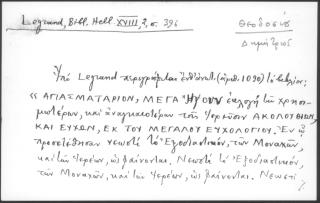 Legrand, Bibl. Hell. XVIII, 2, σ. 396
Θεοδόσιος
Δημήτριος
Ὑπὸ Legrand περιγράφεται ἐνθ' ἀνωτ. (ἀριθ. 1090) τὸ βιβλίον:
« ΑΓΙΑΣΜΑΤΑΡΙΟΝ, ΜΕΓΑ Ἤγουν ἐκλογὴ τῶν χρησι-
μωτέρων, καὶ ἀναγκαιοτέρων τοῖς Ἱερεῦσιν ΑΚΟΛΟΥΘΙΩΝ,
ΚΑΙ ΕΥΧΩΝ, ΕΚ ΤΟΥ ΜΕΓΑΛΟΥ ΕΥΧΟΛΟΓΙΟΥ. Ἐν ᾧ
προσετέθησαν νεωστὶ τὸ Ἐξοδιαστικόν, τῶν Μοναχῶν,
καὶ τῶν Ἱερέων, ὡς φαίνονται. Νεωστὶ τὸ Ἐξοδιαστικόν,
τῶν Μοναχῶν, καὶ τῶν Ἱερέων, ὡς φαίνονται. Νεωστὶ